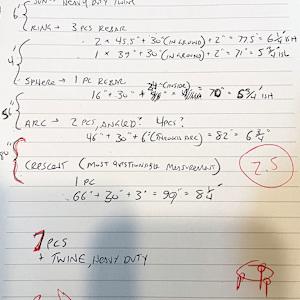 6" SUN - HEAVY DUTY TWINE
RING → 3 PCS REBAR
2 × 45.5" + 30" (IN GROUND) + 2" = 77.5" = 6 1/2' ISH
4' 1 × 39" + 30" (IN GROUND) + 2" = 71" = 5 3/4' ISH
SPHERE → 1 PC REBAR
24" (INSIDE)
16" + 30" = 70" = 5 3/4' ISH
ARC → 2 PCS, ANGLED? 4 PCS?
46" + 30" + 6" (THROUGH ARC) = 82" = 6 3/4'
CRESCENT (MOST QUESTIONABLE MEASUREMENT)
2.5
1 PC
66" + 30" + 3" = 99" = 8 1/4'
7 PCS
+ TWINE, HEAVY DUTY